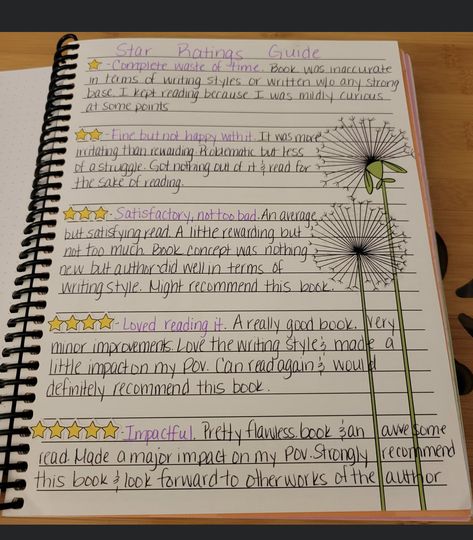 Star Ratings Guide
⭐-Complete waste of time. Book was inaccurate
in terms of writing styles or written w/o any strong
base. I kept reading because I was mildly curious
at some points
⭐⭐-Fine but not happy with it. It was more
irritating than rewarding. Problematic but less
of a struggle. Got nothing out of it & read for
the sake of reading.
⭐⭐⭐-Satisfactory, not too bad. An average
but satisfying read. A little rewarding but
not too much. Book concept was nothing
new but author did well in terms of
writing style. Might recommend this book.
⭐⭐⭐⭐-Loved reading it. A really good book. Very
minor improvements. Love the writing style & made a
little impact on my Pov. Can read again & would
definitely recommend this book.
⭐⭐⭐⭐⭐-Impactful. Pretty flawless book & an awesome
read. Made a major impact on my Pov. Strongly recommend
this book & look forward to other works of the author